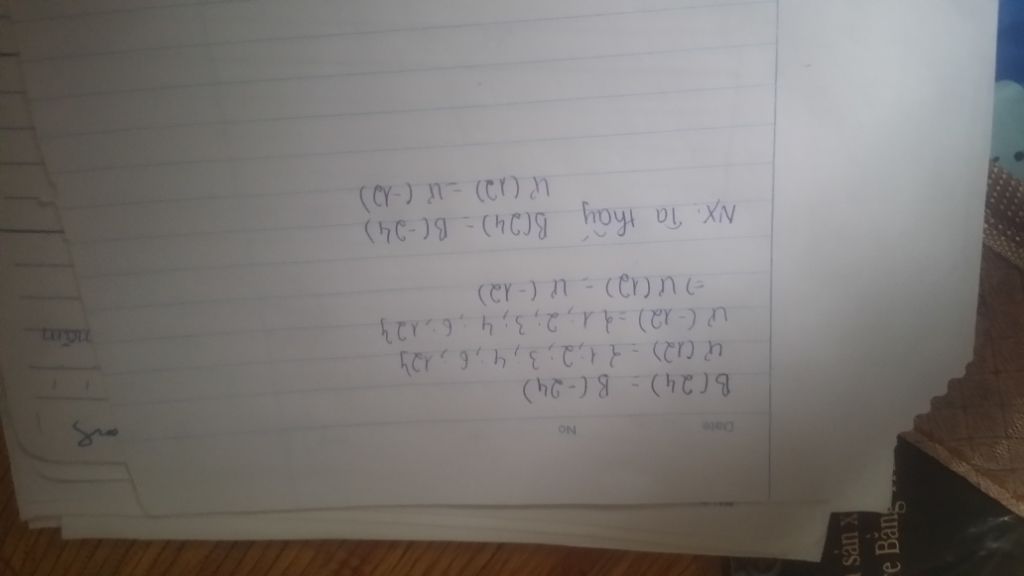 Date No
B(24) = B(-24)
Ư(12) = {1; 2; 3; 4; 6; 12}
Ư(-12) = {1; 2; 3; 4; 6; 12}
=> Ư(12) = Ư(-12)
NX: Ta thấy B(24) = B(-24)
Ư(12) = Ư(-12)
năm
sản x
Băng